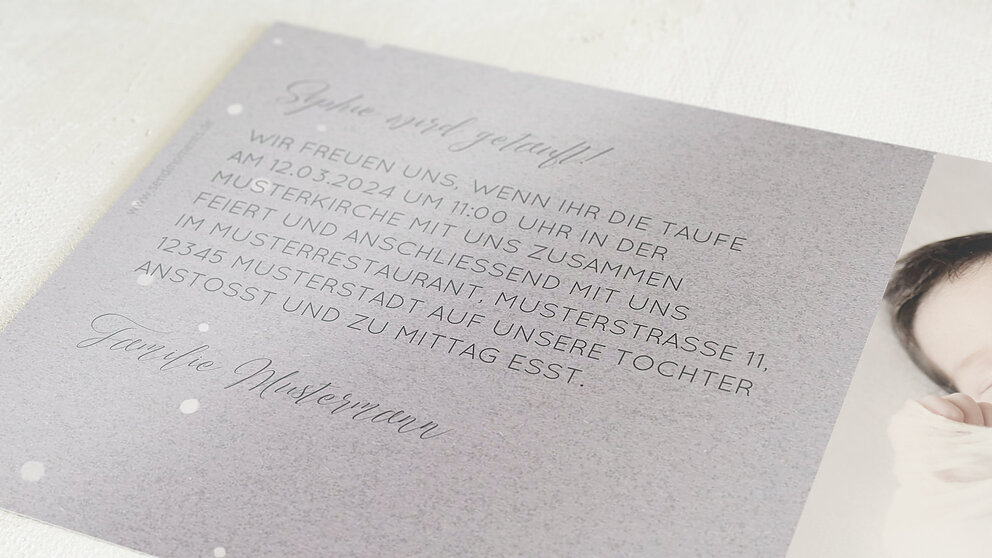 Sophie wird getauft!
WIR FREUEN UNS, WENN IHR DIE TAUFE
AM 12.03.2024 UM 11:00 UHR IN DER
MUSTERKIRCHE MIT UNS ZUSAMMEN
FEIERT UND ANSCHLIESSEND MIT UNS
IM MUSTERRESTAURANT, MUSTERSTRASSE 11,
12345 MUSTERSTADT AUF UNSERE TOCHTER
ANSTOSST UND ZU MITTAG ESST.
Familie Mustermann